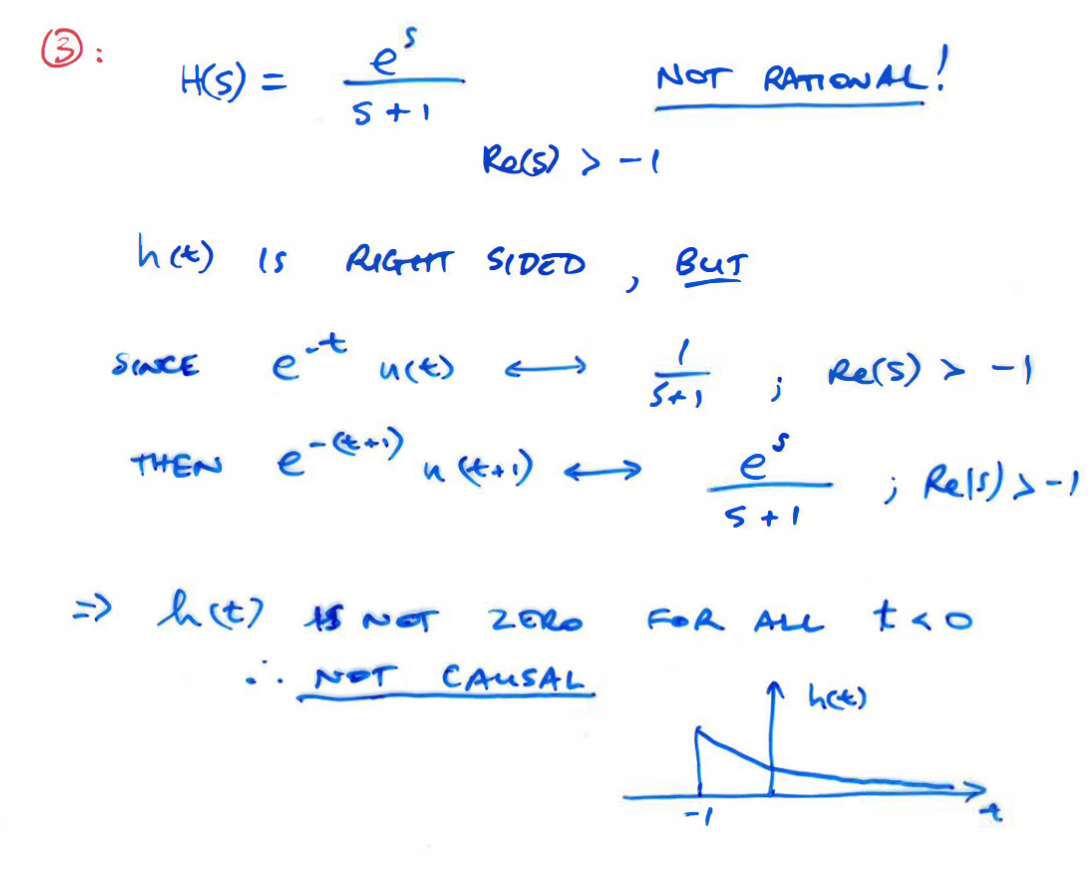 ③: H(s) = e^s / (s+1) NOT RATIONAL!
Re(s) > -1
h(t) IS RIGHT SIDED, BUT
SINCE e^-t u(t) ⟷ 1/(s+1) ; Re(s) > -1
THEN e^-(t+1) u(t+1) ⟷ e^s/(s+1) ; Re(s) > -1
⇒ h(t) IS NOT ZERO FOR ALL t < 0
∴ NOT CAUSAL
h(t)
-1 t